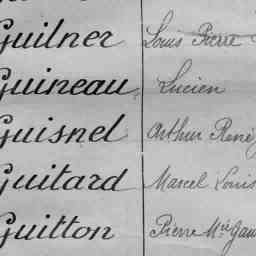 Guilner Louis Pierre
Guineau Lucien
Guisnel Arthur René
Guitard Marcel Louis
Guitton Pierre Mie